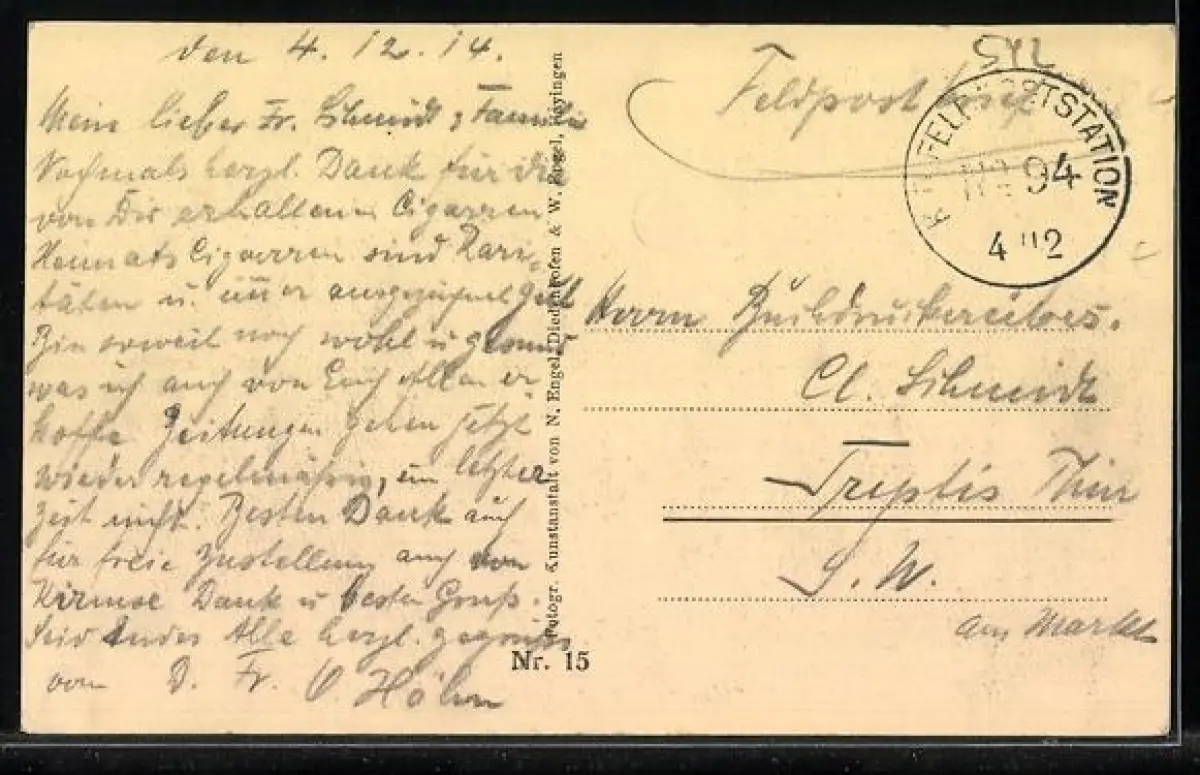 den 4.12.14.
Mein lieber Fr. Schmidt & Familie
Nochmals herzl. Dank für die
von Dir erhaltenen Cigarren
Heimats Cigarren sind Rari-
täten u. immer ausgezeichnet
Bin soweit noch wohl u. gesund,
was ich auch von Euch Allen er-
hoffe Zeitungen gehen jetzt
wieder regelmäßig, in letzter
Zeit nicht. Besten Dank auch
für freie Zustellung auch von
Kirmse Dank u besten Gruß.
Seid Alle herzl. gegrüßt
von D. Fr. O. Höhn
Fotogr. Kunstanstalt von N. Engel, Diedenhofen & W. Engel, Hayingen
Nr. 15
Feldpostbrief
STATION
NR 94
4 12
Herrn Buchdruckereibes.
Cl. Schmidt
Triptis Thür
S. W.
am Markt